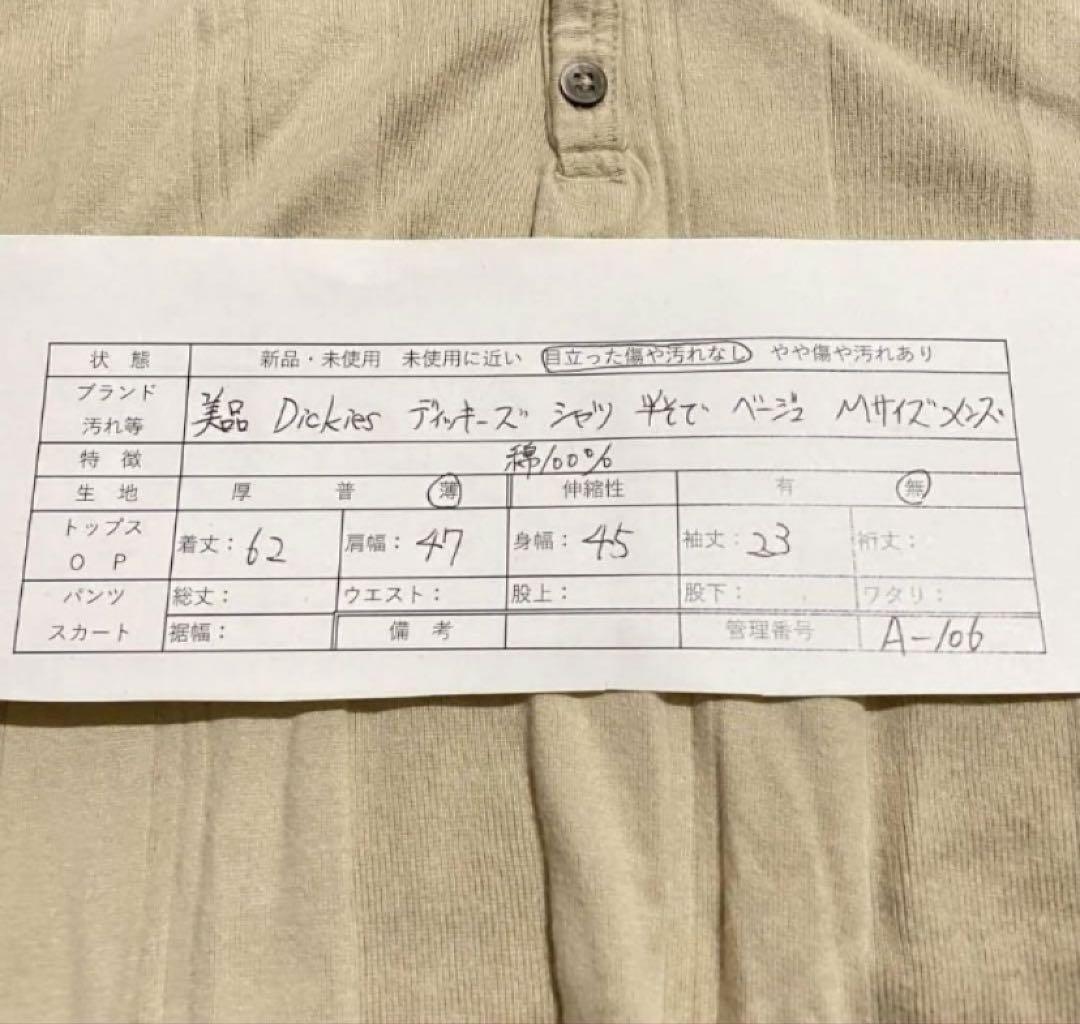 状態 新品・未使用 未使用に近い 目立った傷や汚れなし やや傷や汚れあり
ブランド
汚れ等 美品 Dickies ディッキーズ シャツ 半そで ベージュ Mサイズ メンズ
特徴 綿100%
生地 厚 普 薄 伸縮性 有 無
トップス
OP 着丈：62 肩幅：47 身幅：45 袖丈：23 裄丈：
パンツ 総丈： ウエスト： 股上： 股下： ワタリ：
スカート 裾幅： 備考 管理番号 A-106